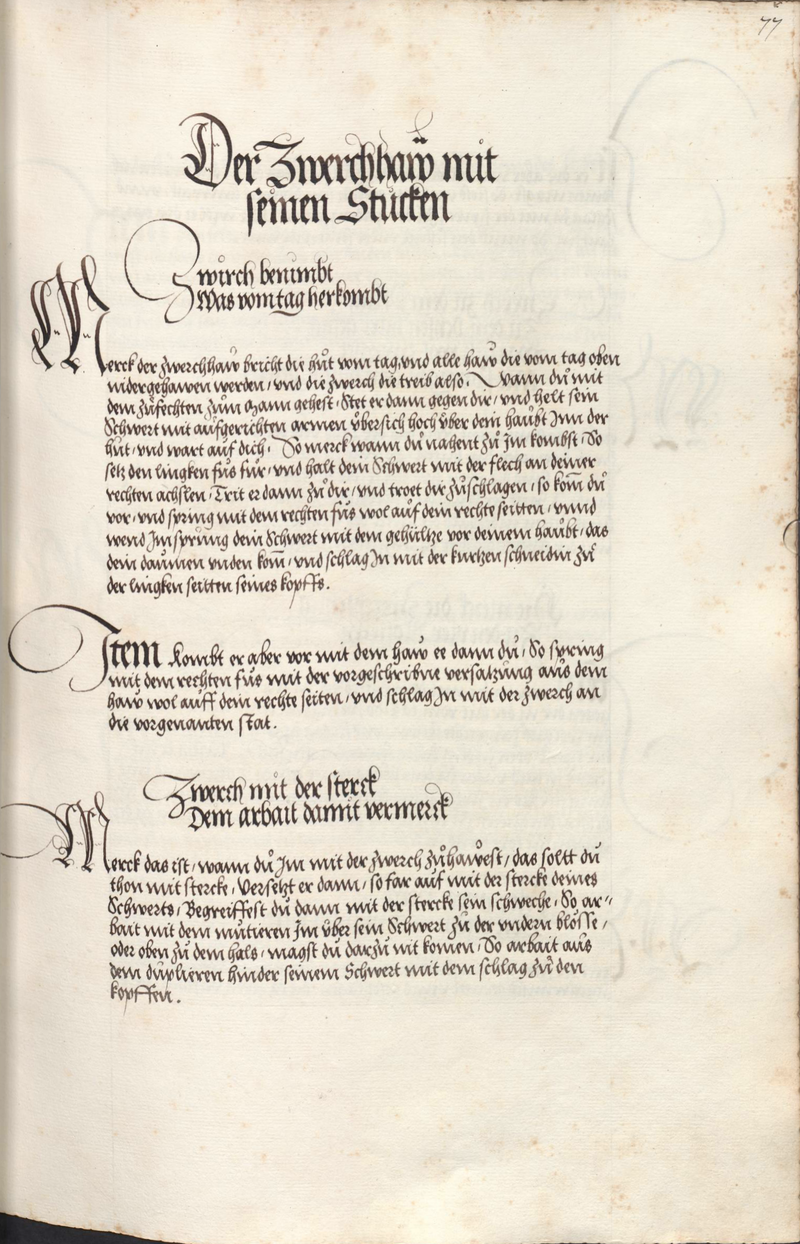 77
Der Zwerchhaw mit
seinen Stucken
Zwirch benimbt
Was vom tag herkombt
Merck der Zwerchhaw bricht die hůt vom tag, vnd alle haw die vom tag oben
nidergehawen werden / vnd die zwerch die treib also. Wann dů mit
dem zůfechten zům Mann gehest / Stet er dann gegen dir / vnd helt sein
Schwert mit aufgerichten armen v̊bersich hoch v̊ber dem haubt Inn der
hůt / vnd wart auf dich / So merck wann dů nahent zů Im kombst / So
setz den lingken fůs fůr / vnd halt dein Schwert mit der flech an deiner
rechten achslen / Trit er dann zů dir / vnd troet dir zůschlagen / so kom̄ dů
vor / vnd spring mit dem rechten fůs wol auf dein rechte seitten / vnnd
wend Im sprůng dein Schwert mit dem gehůltze vor deinem haubt / das
dein daumen vnden kom̄ / vnd schlag In mit der kurtzen schneidin zů
der lingken seitten seines kopffs.
Item Kombt er aber vor mit dem haw ee dann dů / So spring
mit dem rechten fůs mit der vorgeschribne versatzung aus dem
haw wol auff dein rechte seiten / vnd schlag In mit der zwerch an
die vorgenanten stat.
Zwerch mit der sterck
Dem arbait damit vermerck
Merck das ist / wann dů Im mit der zwerch zůhawest / das soltt dů
thon mit stercke / Versetzt er dann / so far auf mit der stercke deines
Schwerts / Begreiffest dů dann mit der stercke sein schweche / So ar-
bait mit dem mutieren Im v̊ber sein Schwert zů der vndern blősse /
oder oben zů dem hals / magst dů darzů nit komen / So arbait aus
dem duplieren hinder seinem Schwert mit dem schlag zů den
kopffen.